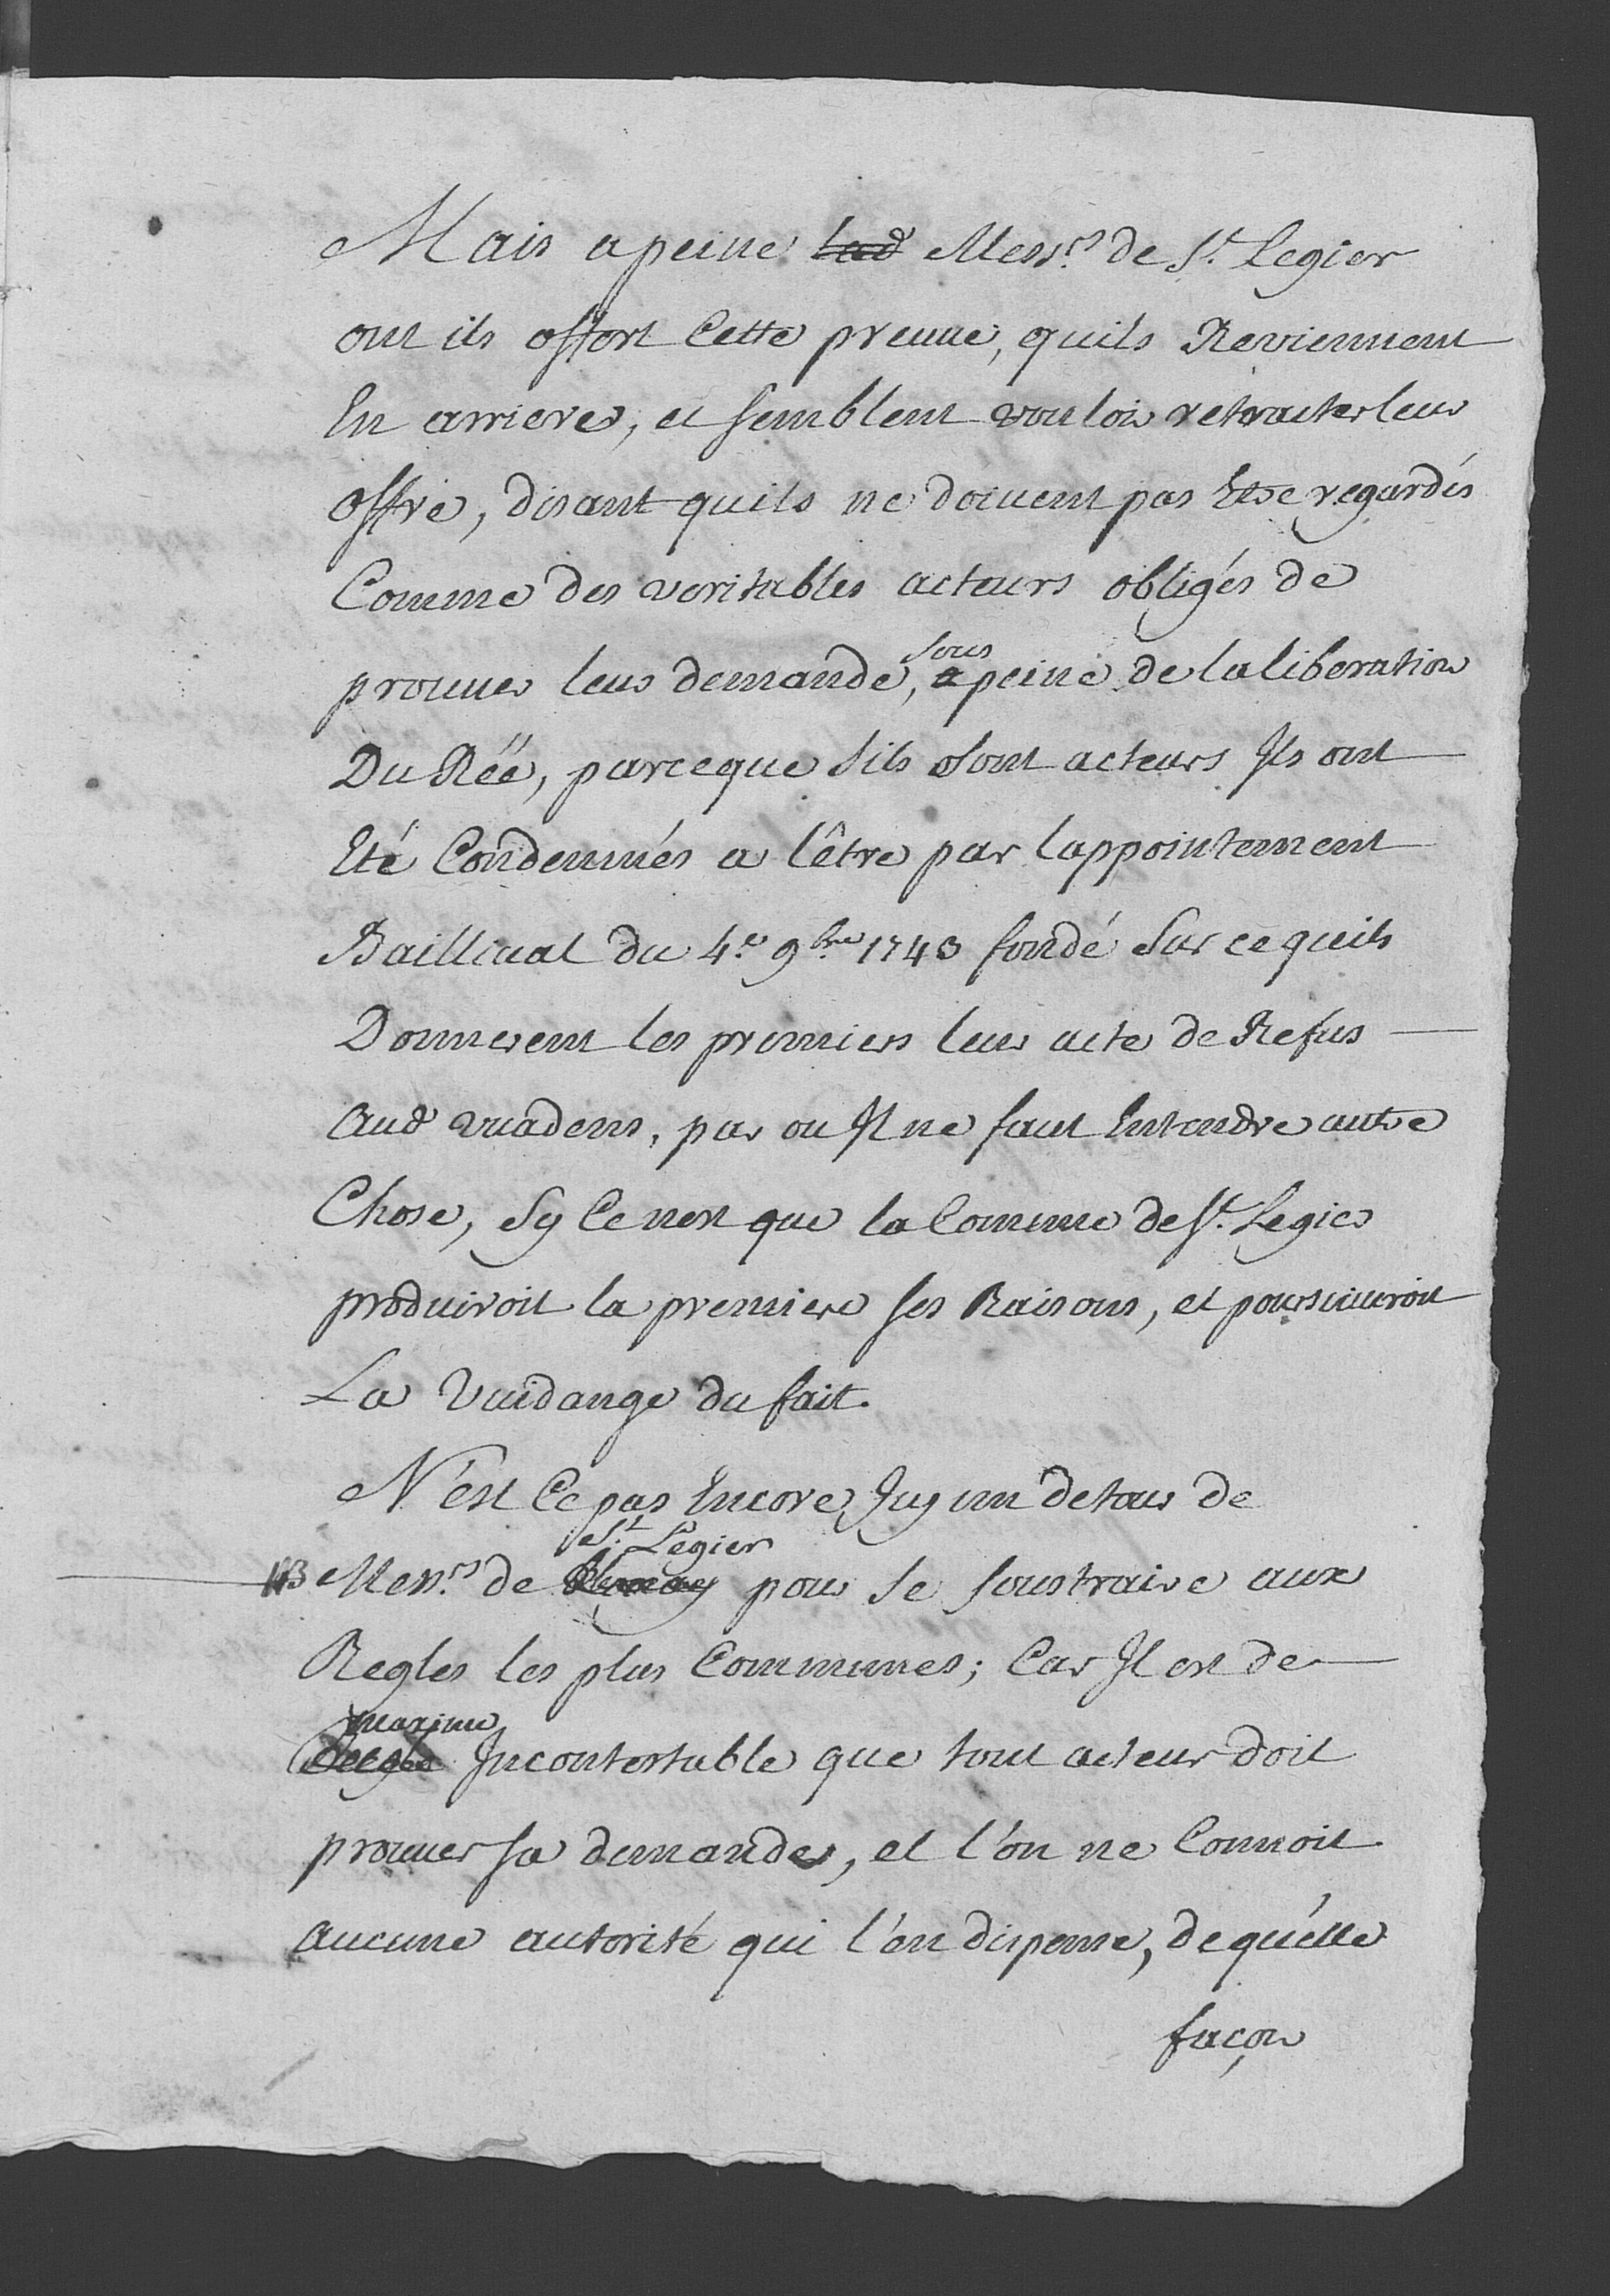 Mais apeine lad Mess.rs de S.t Legier
ont ils offert Cette preuue, quils Reviennent
En arriere, et semblent vouloir retracter leur
offre, disant quils ne doiuent pas Etre regardés
Comme des veritables acteurs obligés de
sous
prouuer leur demande, a peine de la liberation
Du Réé, parceque sils sont acteurs Ils ont
Eté Condemnés a l'être par lappointement
Bailliual du 4.e 9.bre 1743 fondé sur ce quils
Donnerent les premiers leur acte de Refus
aud vuadens, par ou Il ne faut Entendre autre
Chose, sy Ce nest que la Comune de S.t Legier
produiroit la premiere ses Raisons, et poursuiuroit
La Vuidange du fait.
N'est Ce pas Encore Icy un detour de
S.t Legier
Mess.rs de Blonay pour se soustraire aux
Regles les plus Communes; Car Il est de
maxime
Regle Incontestable que tout acteur doit
prouuer sa demande, et l'on ne Connoit
aucune autorité qui l'en dispense, de quelle
façon